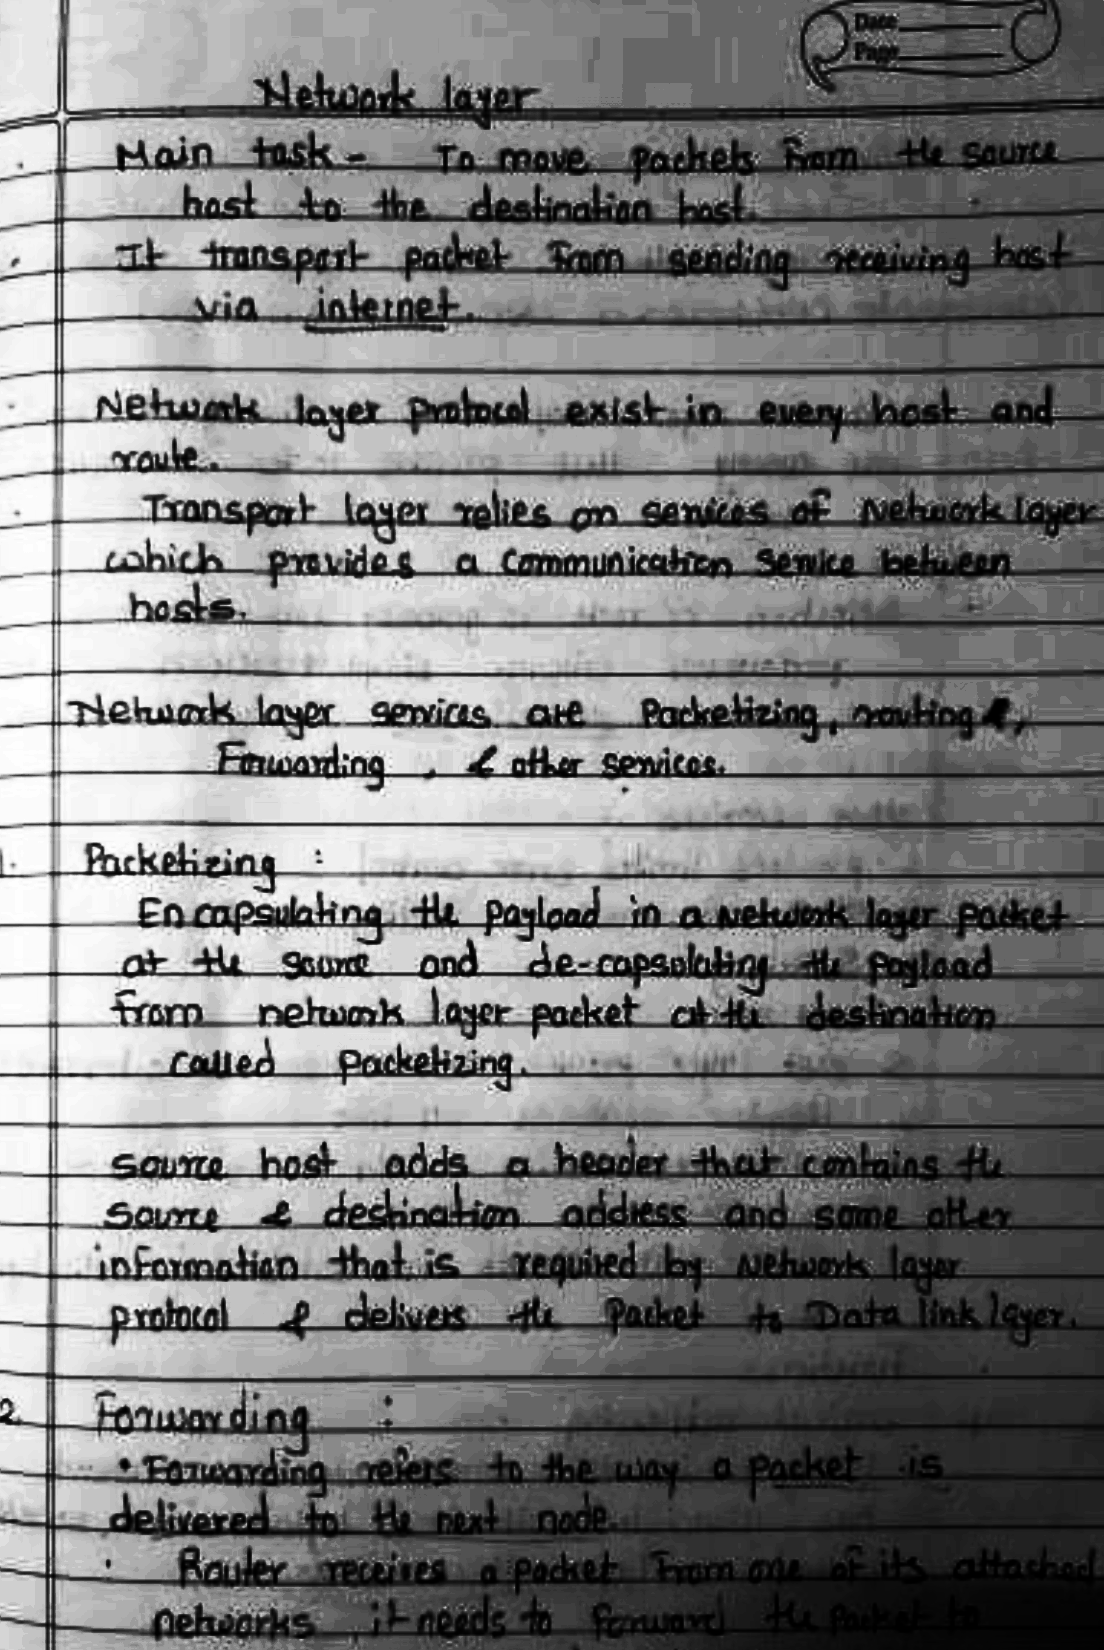 Date
Page
Network layer
Main task - To move packets from the source
host to the destination host.
It transport packet from sending receiving host
via internet.
Network layer protocol exist in every host and
route.
Transport layer relies on services of Network layer
which provides a communication service between
hosts.
Network layer services are Packetizing, routing &,
Forwarding, & other services.
1. Packetizing :
Encapsulating the payload in a Network layer packet
at the source and de-capsulating the payload
from network layer packet at the destination
called packetizing.
source host adds a header that contains the
source & destination address and some other
information that is required by Network layer
protocol & delivers the packet to Data link layer.
2. Forwarding :
• Forwarding refers to the way a packet is
delivered to the next node.
• Router receives a packet from one of its attached
networks, it needs to forward the packet to